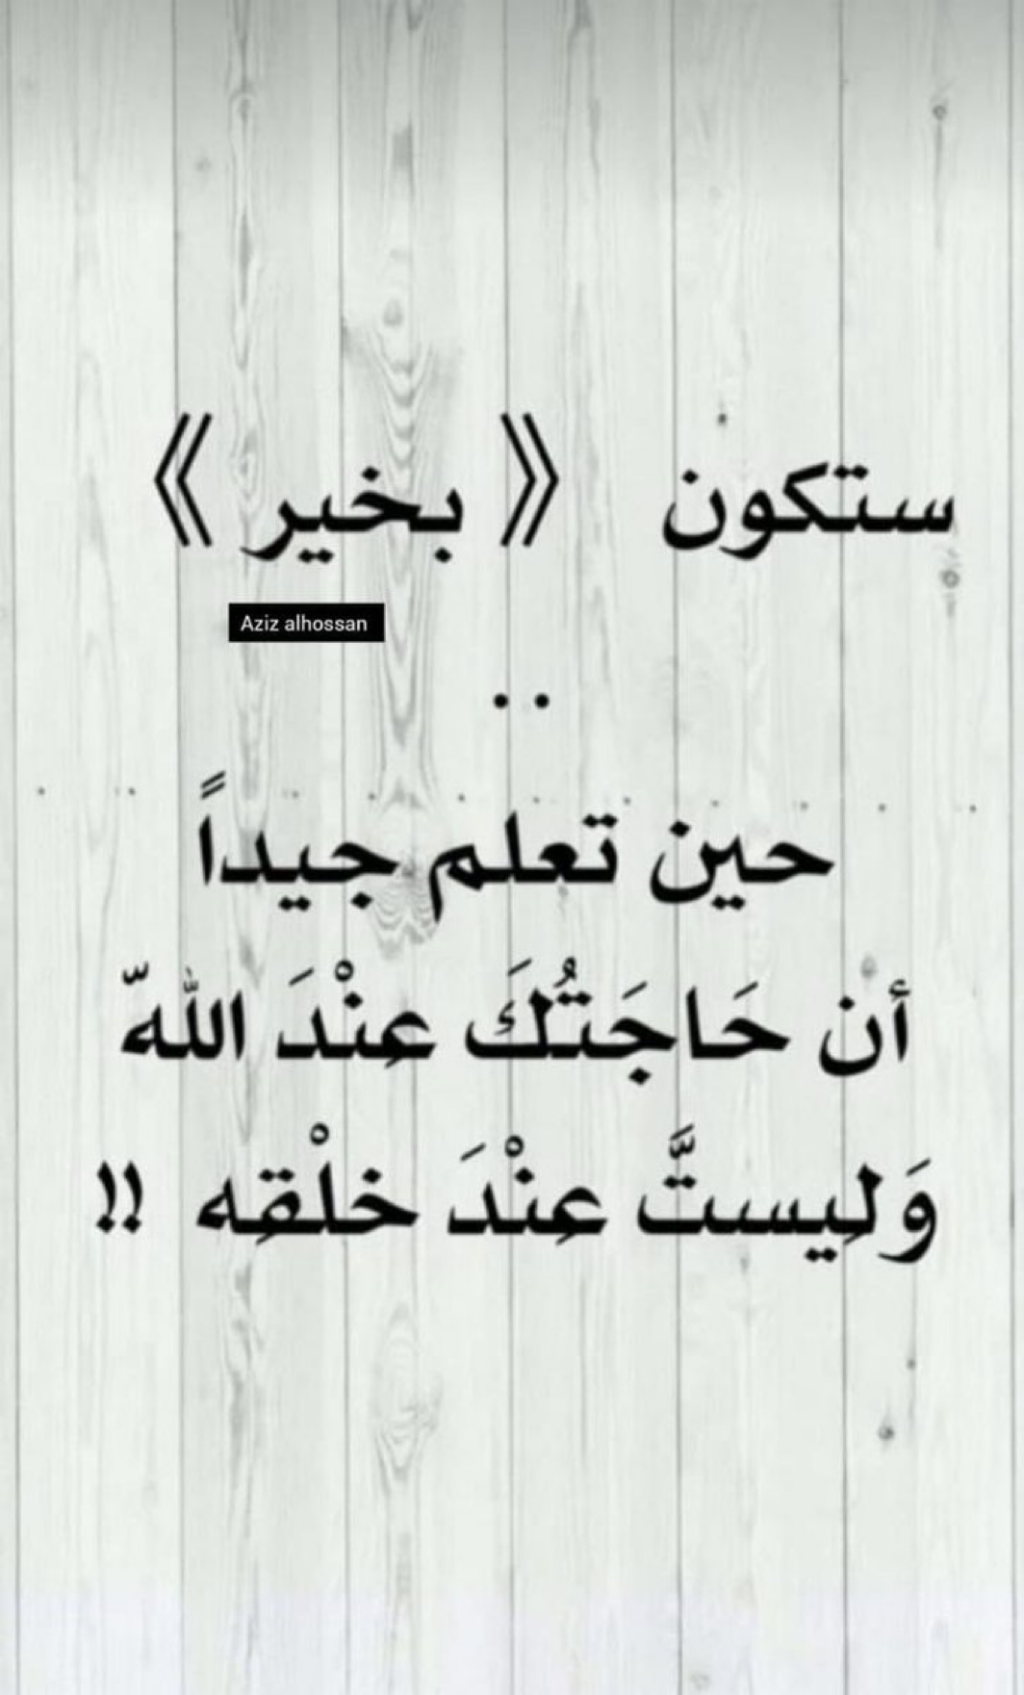 ستكون 《 بخير 》
Aziz alhossan
..
حين تعلم جيداً
أن حَاجَتُكَ عِنْدَ اللهّ
وَلِيستَّ عِنْدَ خلْقِه !!